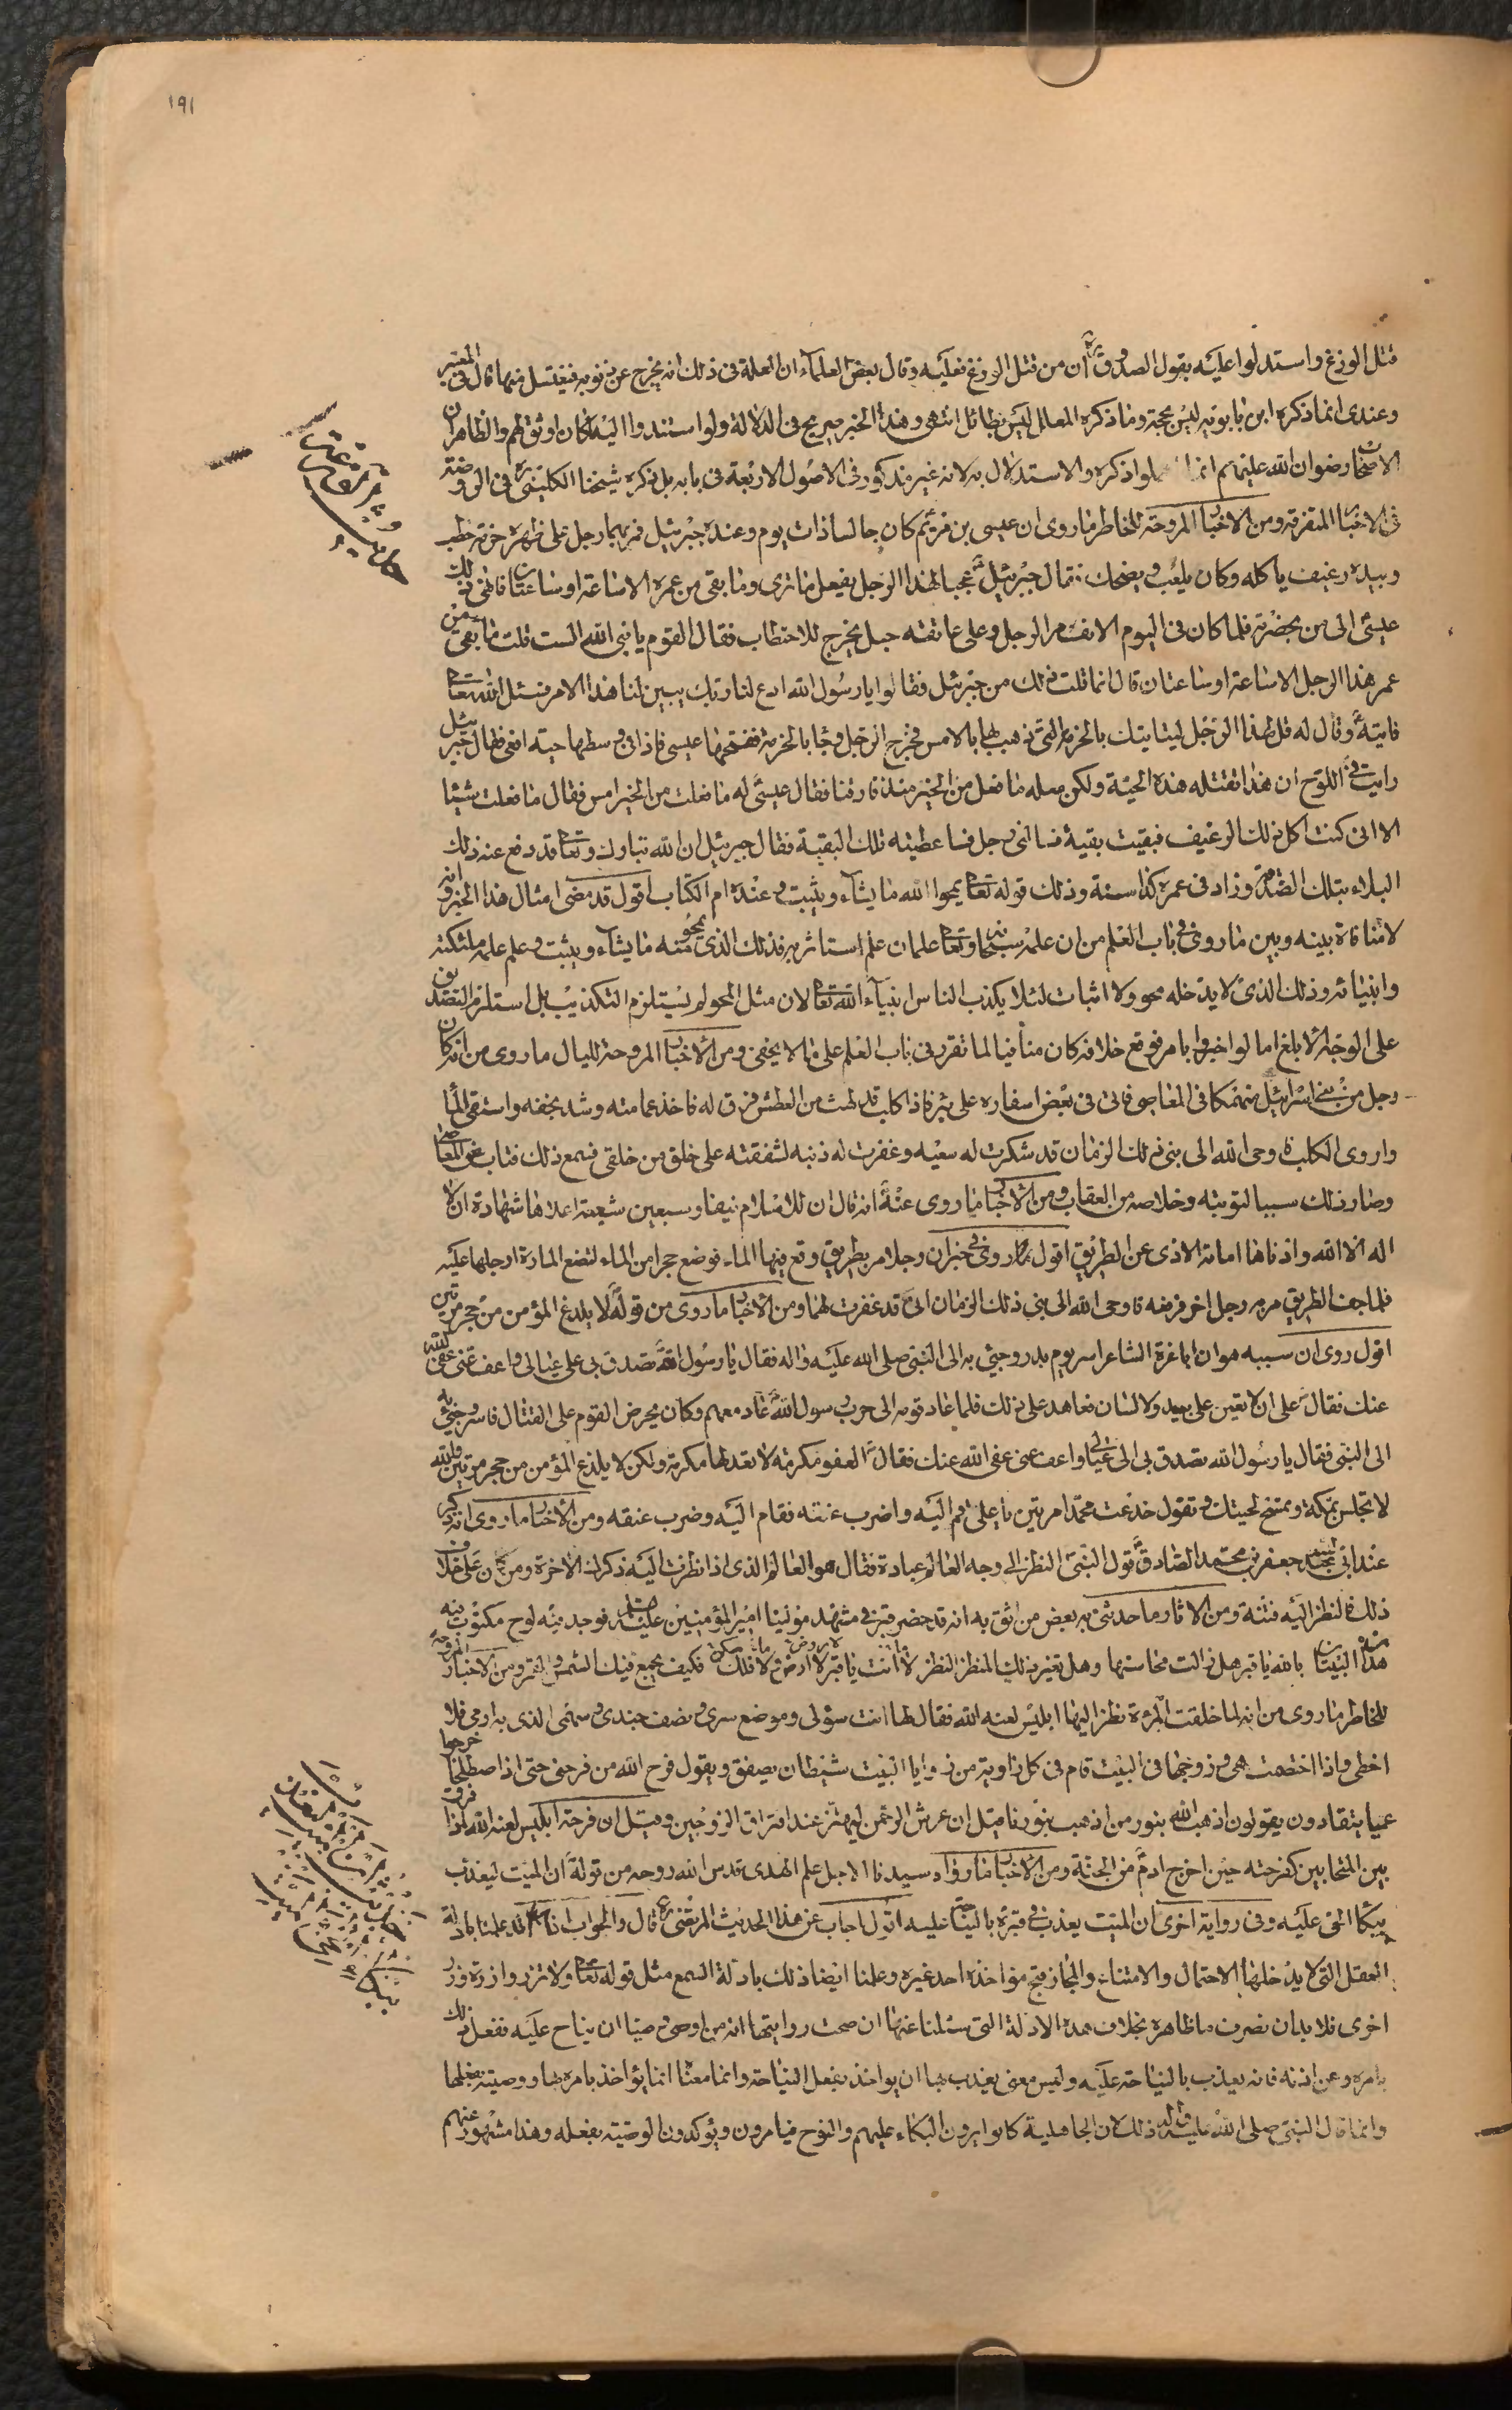 ١٩١
قتل الوزغ واستدلوا عليه بقول الصدوق ره ان من قتل الوزغ فعليه وقال بعض العلماء ان العلة فى ذلك انه يخرج عن ذنوبه فيغتسل منها قال فى المعتبر
وعندى انما ذكره ابن بابويه ليس بحجة وما ذكره المعلل ليس بطائل انتهى وهذا الخبر صريح فى الدلالة ولو استندوا اليه لكان اوثق لهم والظاهر ان
الاصحاب رضوان الله عليهم انما ذكره والاستدلال به لانه غير مذكور فى الاصول الاربعة فى بابه بل ذكره شيخنا الكلينى ره فى الروضة
فى الاخبار المتفرقة ومن الاخبار المروحة للخاطر ما روى ان عيسى بن مريم كان جالسا ذات يوم وعنده جبرئيل فمر بهما رجل على ظهره حزمة حطب
وبيده رغيف ياكله وكان يلعب ويضحك فقال جبرئيل عجبا لهذا الرجل يفعل ما ترى وما بقى من عمره الا ساعة او ساعتان فافشى ذلك
عيسى الى من بحضرته فلما كان فى اليوم الاتى مر الرجل وعلى عاتقه حبل يخرج للاحتطاب فقال القوم يا نبى الله الست قلت ما بقى من
عمر هذا الرجل الا ساعة او ساعتان قال انما قلت ذلك من جبرئيل فقالوا يا رسول الله ادع لنا ربك يبين لنا هذا الامر فسئل الله تعالى
فاتيه وقال له قل لهذا الرجل ليئايتك بالحزمة التى ذهب بها بالامس فخرج الرجل وجاء بالحزمة ففتحها عيسى فاذا فى وسطها حية افعى فقال جبرئيل
رايت فى اللوح ان هذا تقتله هذه الحية ولكن سله ما فعل من الخير منذ فارقنا فقال عيسى له ما فعلت من الخير امس فقال ما فعلت شيئا
الا انى كنت اكل ذلك الرغيف فبقيت بقية فسالنى رجل فاعطيته تلك البقية فقال جبرئيل ان الله تبارك وتعالى قد دفع عنه ذلك
البلاء بتلك الصدقة وزاد فى عمره كذا سنة وذلك قوله تعالى يمحوا الله ما يشاء ويثبت وعنده ام الكتاب اقول قد مضى امثال هذا الخبر وانه
لا منافاة بينه وبين ما روى فى باب العلم من ان علمه سبحانه وتعالى علمان علم استاثر به فذلك الذى يمحو منه ما يشاء ويثبت وعلم علمه ملئكته
وانبيائه وذلك الذى لا يدخله محو ولا اثبات لئلا يكذب الناس انبياء الله تعالى لان مثل المحو لم يستلزم التكذيب بل استلزم التصديق
على الوجه الابلغ اما لو اخبروا بامر فوقع خلافه كان منافيا لما تقرر فى باب العلم على ما لا يخفى ومن الاخبار المروحة للبال ما روى من انه كان
رجل من بنى اسرائيل منهمكا فى المعاصى فاتى فى بعض اسفاره على بئر فاذا كلب قد لهث من العطش فرق له فاخذ عمامته وشد بخفه واستقى الماء
واروى الكلب فاوحى الله الى بنى ذلك الزمان قد شكرت له سعيه وغفرت له ذنبه لشفقته على خلق من خلقى فسمع ذلك فتاب عن المعاصى
وصار ذلك سببا لتوبته وخلاصه من العقاب ومن الاخبار ما روى عنه انه قال ان للاسلام نيفا وسبعين شعبة اعلاها شهادة ان لا
اله الا الله وادناها اماتة الاذى عن الطريق اقول وروى فى خبر ان رجلا مر بطريق وقع فيها الماء فوضع حجرا من الماء لتضع المارة ارجلها عليه
فلما جف الطريق مر به رجل اخر فرفعه فاوحى الله الى بنى ذلك الزمان انى قد غفرت لهما ومن الاخبار ما روى من قوله لا يلدغ المؤمن من جحر مرتين
اقول روى ان سببه هو ان ابا غرة الشاعر اسر يوم بدر وجئ به الى النبى صلى الله عليه واله فقال يا رسول الله تصدق بى على عيالى واعف عنى عفى الله
عنك فقال على ان لا تعين على بيد ولا لسان فعاهد على ذلك فلما عاد قومه الى حرب رسول الله عاد معهم وكان يحرض القوم على القتال فاسر وجئ به
الى النبى فقال يا رسول الله تصدق بى الى عيالى واعف عنى عفى الله عنك فقال العفو مكرمة لا تعد لها مكرمة ولكن لا يلدغ المؤمن من جحر مرتين والله
لا تجلس بمكة وتمسح لحيتك وتقول خدعت محمدا مرتين يا على قم اليه واضرب عنقه فقام اليه وضرب عنقه ومن الاخبار ما روى انه ذكر
عند جعفر بن محمد الصادق قول النبى النظر الى وجه العالم عبادة فقال هو العالم الذى اذا نظرت اليه ذكرك الاخرة ومن كان على خلاف
ذلك فالنظر اليه فتنة ومن الاثار ما حدثنى به بعض من اثق به انه قد حضر قبر فى مشهد مولينا امير المؤمنين عليه السلام فوجد فيه لوح مكتوب فيه
هذان البيتان بالله يا قبر هل زالت محاسنها وهل تغير ذلك المنظر النظر ما انت يا قبر لا ارض ولا فلك فكيف يجمع فيك الشمس والقمر ومن الاخبار المروحة
للخاطر ما روى من انه لما خلقت المرءة نظر اليها ابليس لعنه الله فقال لها انت سؤلى وموضع سرى ونصف جندى وسهمى الذى به ارمى فلا
اخطى واذا اختصمت هى وزوجها فى البيت قام فى كل زاوية من زوايا البيت شيطان يصفق ويقول فرح الله من فرحنى حتى اذا اصطلحا خرجوا
عميا يتقادون يقولون اذهب الله بنور من اذهب بنورنا وقيل ان عرش الرحمن ليهتز عند افتراق الزوجين وقيل ان فرحة ابليس لعنه الله اذا فرق
بين المتحابين كفرحته حين اخرج ادم من الجنة ومن الاخبار ما رواه سيدنا الاجل علم الهدى قدس الله روحه من قوله ان الميت ليعذب
ببكاء الحى عليه وفى رواية اخرى ان الميت يعذب فى قبره بالنياحة عليه اجاب عن هذا الحديث المرتضى ره قال والجواب انا علمنا بادلة
العقل التى لا يدخلها الاحتمال والامتناع والمجاز قبح مؤاخذة احد غيره وعلمنا ايضا ذلك بادلة السمع مثل قوله تعالى ولا تزر وازرة وزر
اخرى فلا بد ان نصرف ما ظاهره بخلاف هذه الادلة التى سئلنا عنها ان صحت روايتها انه من اوصى ان يناح عليه ففعل ذلك
بامره وعن اذنه فانه يعذب بالنياحة عليه وليس معنى يعذب بها ان يواخذ بفعل النياحة وانما معناه انما يؤاخذ بامره بها ووصيته بفعلها
وانما قال النبى صلى الله عليه واله ذلك لان الجاهلية كانوا يرون البكاء عليهم والنوح فيامرون ويؤكدون الوصية بفعله وهذا مشهور عنهم